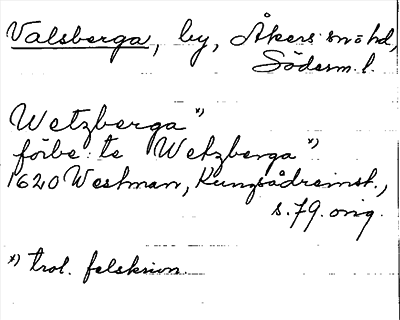 Valsberga, by, Åkers sn o hd,
Söderm. l.
Wetzberga x)
förbe: te Wetzberga x)
1620 Westman, Kungsådreinst.,
s. 79. orig.
x) trol. felskrivn.